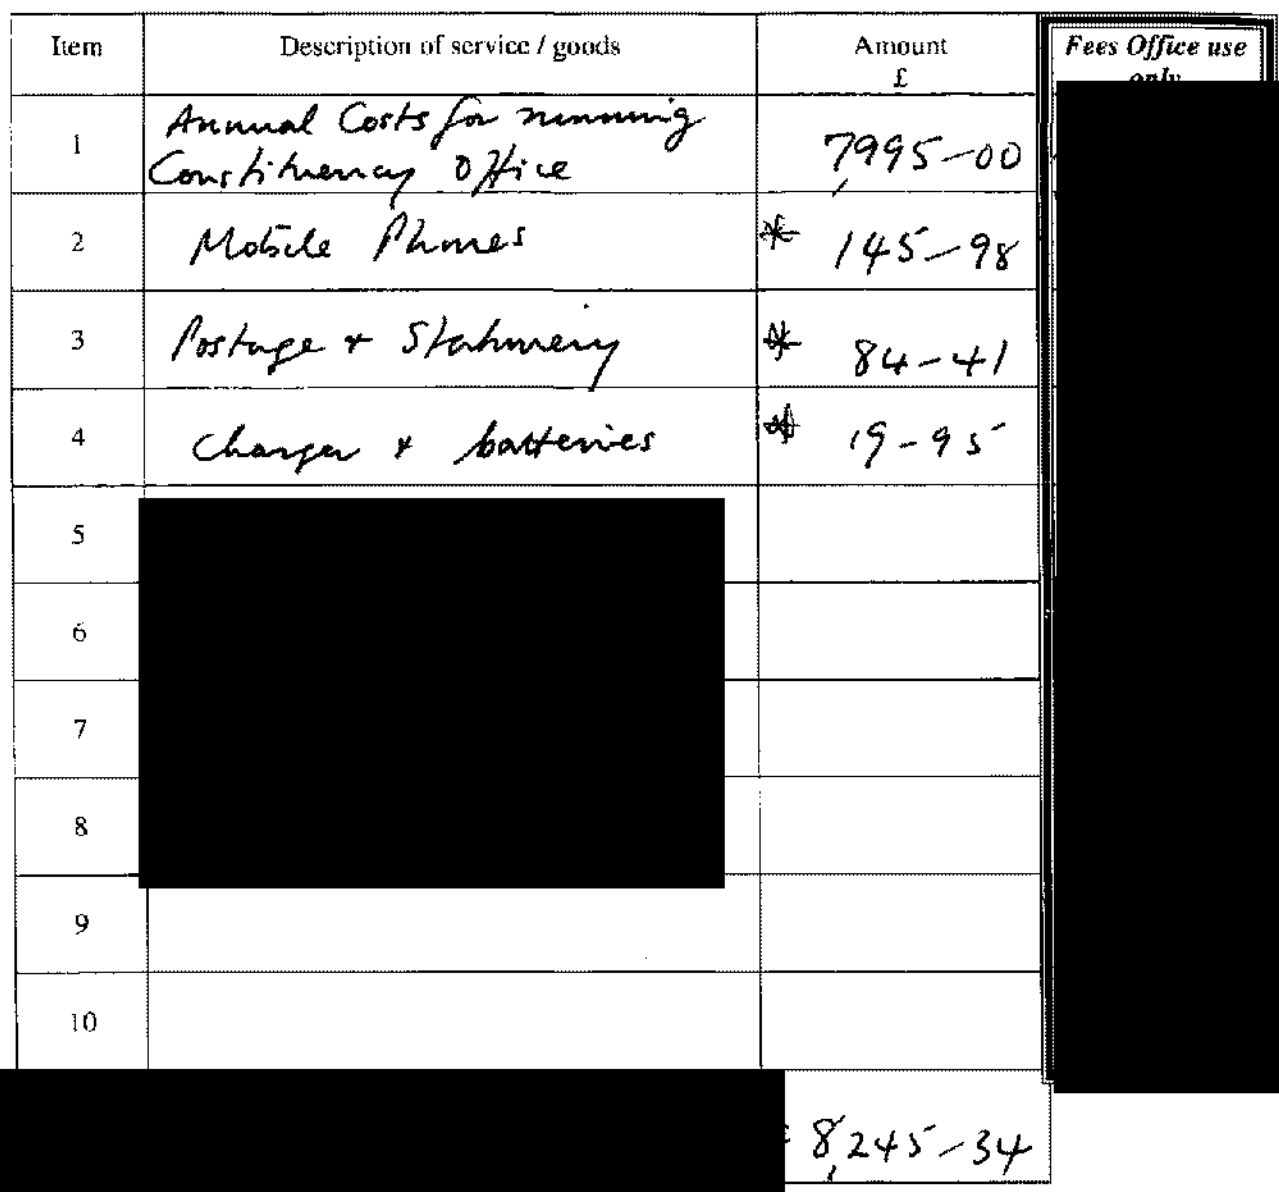 Item Description of service / goods Amount Fees Office use
£ only
1 Annual Costs for running
Constituency Office 7,995-00
2 Mobile Phones * 145-98
3 Postage + Stationery * 84-41
4 Charger + batteries * 19-95
5
6
7
8
9
10
£ 8,245-34